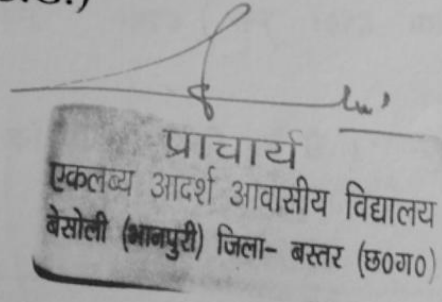 प्राचार्य
एकलव्य आदर्श आवासीय विद्यालय
बेसोली (भानपुरी) जिला- बस्तर (छ०ग०)